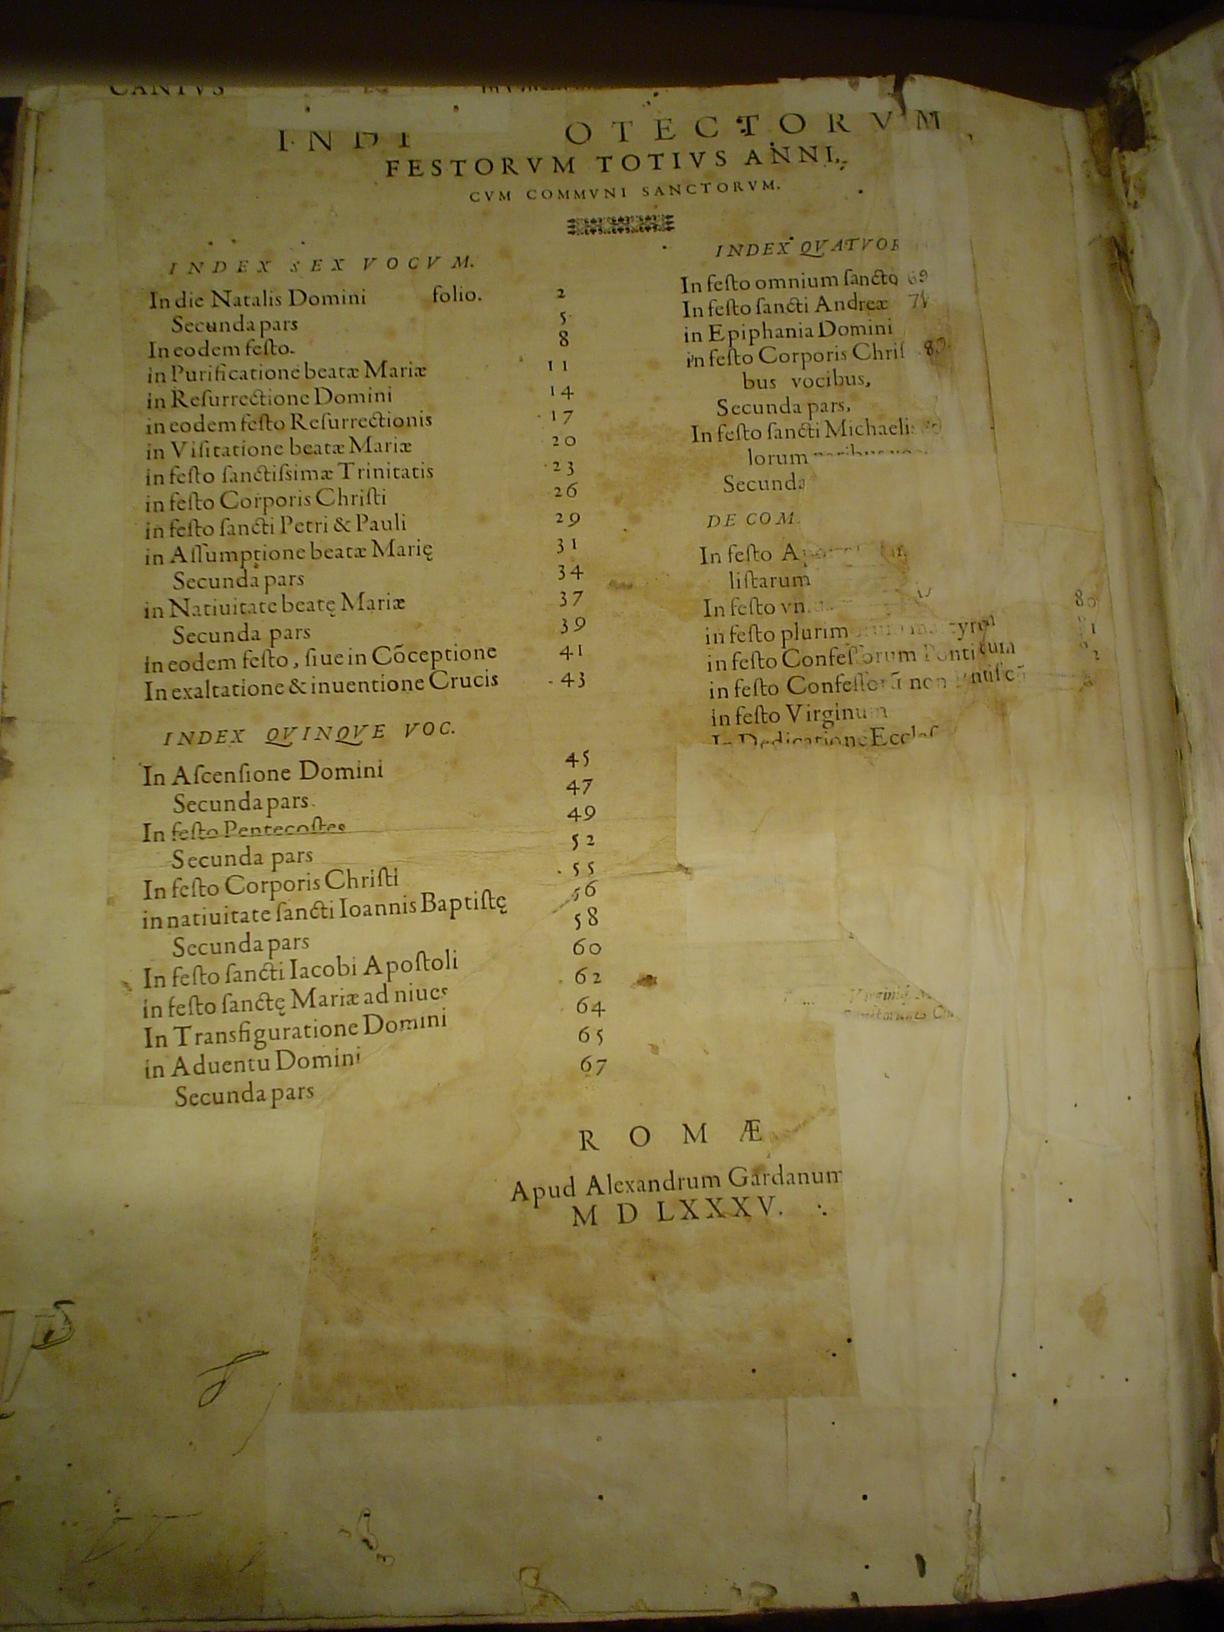 CANTVS
INDI OTECTORVM
FESTORVM TOTIVS ANNI,
CVM COMMVNI SANCTORVM.
INDEX SEX VOCVM.
In die Natalis Domini folio. 2
Secunda pars 5
In eodem festo. 8
in Purificatione beatæ Mariæ 11
in Resurrectione Domini 14
in eodem festo Resurrectionis 17
in Visitatione beatæ Mariæ 20
in festo sanctissimæ Trinitatis 23
in festo Corporis Christi 26
in festo sancti Petri & Pauli 29
in Assumptione beatæ Marię 31
Secunda pars 34
in Natiuitate beatę Mariæ 37
Secunda pars 39
in eodem festo, siue in Cõceptione 41
In exaltatione & inuentione Crucis 43
INDEX QVINQVE VOC.
In Ascensione Domini 45
Secunda pars. 47
In festo Pentecostes 49
Secunda pars 52
In festo Corporis Christi 55
in natiuitate sancti Ioannis Baptistę 56
Secunda pars 58
In festo sancti Iacobi Apostoli 60
in festo sanctę Mariæ ad niues 62
In Transfiguratione Domini 64
in Aduentu Domini 65
Secunda pars 67
INDEX QVATVOR
In festo omnium sancto 69
In festo sancti Andreæ
in Epiphania Domini
in festo Corporis Chris
bus vocibus,
Secunda pars,
In festo sancti Michaelis
lorum
Secunda
DE COM.
In festo
listarum
In festo vn
in festo plurim
in festo Confessorum Pontificum
in festo Confessorũ non
in festo Virginum
In Dedicatione Eccles
ROMÆ
Apud Alexandrum Gardanum
M D LXXXV.